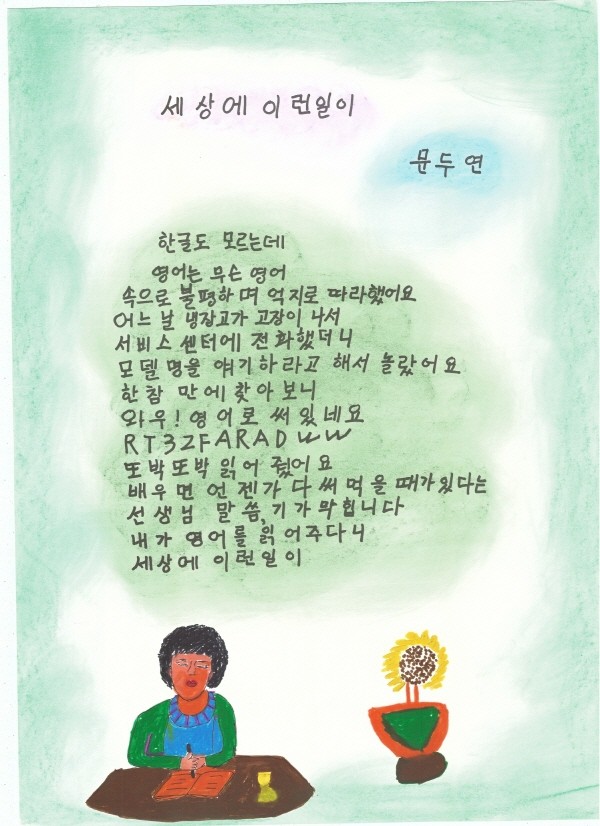 세상에 이런일이
문두연
한글도 모르는데
영어는 무슨 영어
속으로 불평하며 억지로 따라했어요
어느 날 냉장고가 고장이 나서
서비스 센터에 전화했더니
모델명을 얘기하라고 해서 놀랐어요
한참 만에 찾아보니
와우! 영어로 써있네요
RT32FARADWW
또박또박 읽어 줬어요
배우면 언젠가 다 써먹을 때가 있다는
선생님 말씀, 기가 막힙니다
내가 영어를 읽어주다니
세상에 이런일이